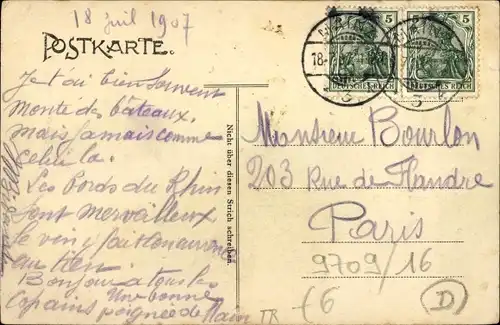 18 Juil 1907
POSTKARTE.
5 5
MAINZ
18.7.07
DEUTSCHES REICH DEUTSCHES REICH
Je t'ai bien souvent
monté des bâteaux,
mais jamais comme
celui la.
Les Bords du Rhin
sont merveilleux
le vin y fait
au tien
Bonjour a tous les
Copains Une bonne
poignée de Main
Nicht über diesen Strich schreiben.
Monsieur Bourlon
203 Rue de Flandre
Paris
9709/16
£6
D
TR